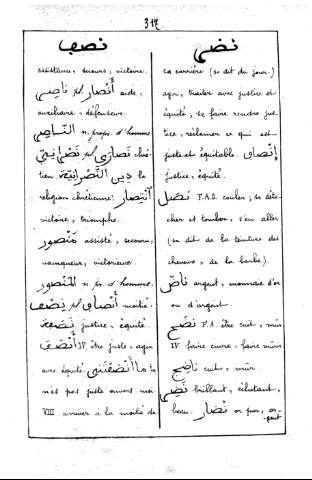 317
نصف
assistance, secours, victoire.
ناصِر pl. أَنْصار aide,
auxiliaire, défenseur.
النّاصِر n. propre d'homme
نَصْرانِيّ pl. نَصارَى chré-
tien. دِين النَّصْرانِيّة la
religion chrétienne. اِنْتِصار
victoire, triomphe.
مَنْصُور assisté, secouru,
vainqueur, victorieux.
المَنْصُور n. pr. d'homme.
نِصْف pl. أَنْصاف moitié
نَصَفَة justice, équité.
أَنْصَفَ IV. être juste, agir
avec équité. ما أَنْصَفْتَنِي tu
n'es pas juste envers moi.
VIII. arriver à la moitié de
نضى
sa carrière (se dit du jour.)
agir, traiter avec justice et
équité, se faire rendre jus-
tice, réclamer ce qui est
juste et équitable. إِنْصاف
justice, équité.
نَصَلَ F.A.O. couler, se déta-
cher et tomber, s'en aller
(se dit de la teinture des
cheveux, de la barbe).
ناضّ argent, monnaie d'or
ou d'argent.
نَضَجَ F.A. être cuit, mûr
IV faire cuire, faire mûrir
ناضِج cuit, mûr.
brillant, éclatant,
beau. نُضار or pur, or-